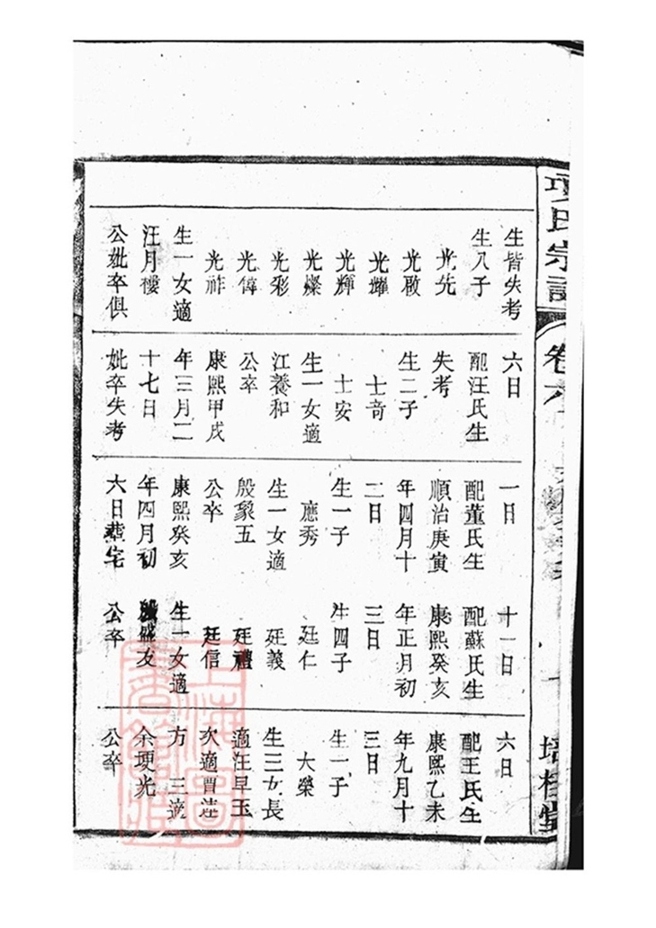 項氏宗譜
卷六
培桂堂
生皆失考
生八子
光先
光啟
光耀
光輝
光燦
光彩
光偉
光祚
生一女適
汪月樓
公妣卒俱
六日
配汪氏生
失考
生二子
士奇
士安
生一女適
江養和
公卒
康熙甲戌
年三月二
十七日
妣卒失考
一日
配董氏生
順治庚寅
年四月十
二日
生一子
應秀
生一女適
殷象五
公卒
康熙癸亥
年四月初
六日葬宅
十一日
配蘇氏生
康熙癸亥
年正月初
三日
生四子
廷仁
廷義
廷禮
廷信
生一女適
盛友
公卒
六日
配王氏生
康熙乙未
年九月十
三日
生一子
大榮
生三女長
適汪早玉
次適賈
方 三適
余埂光
公卒